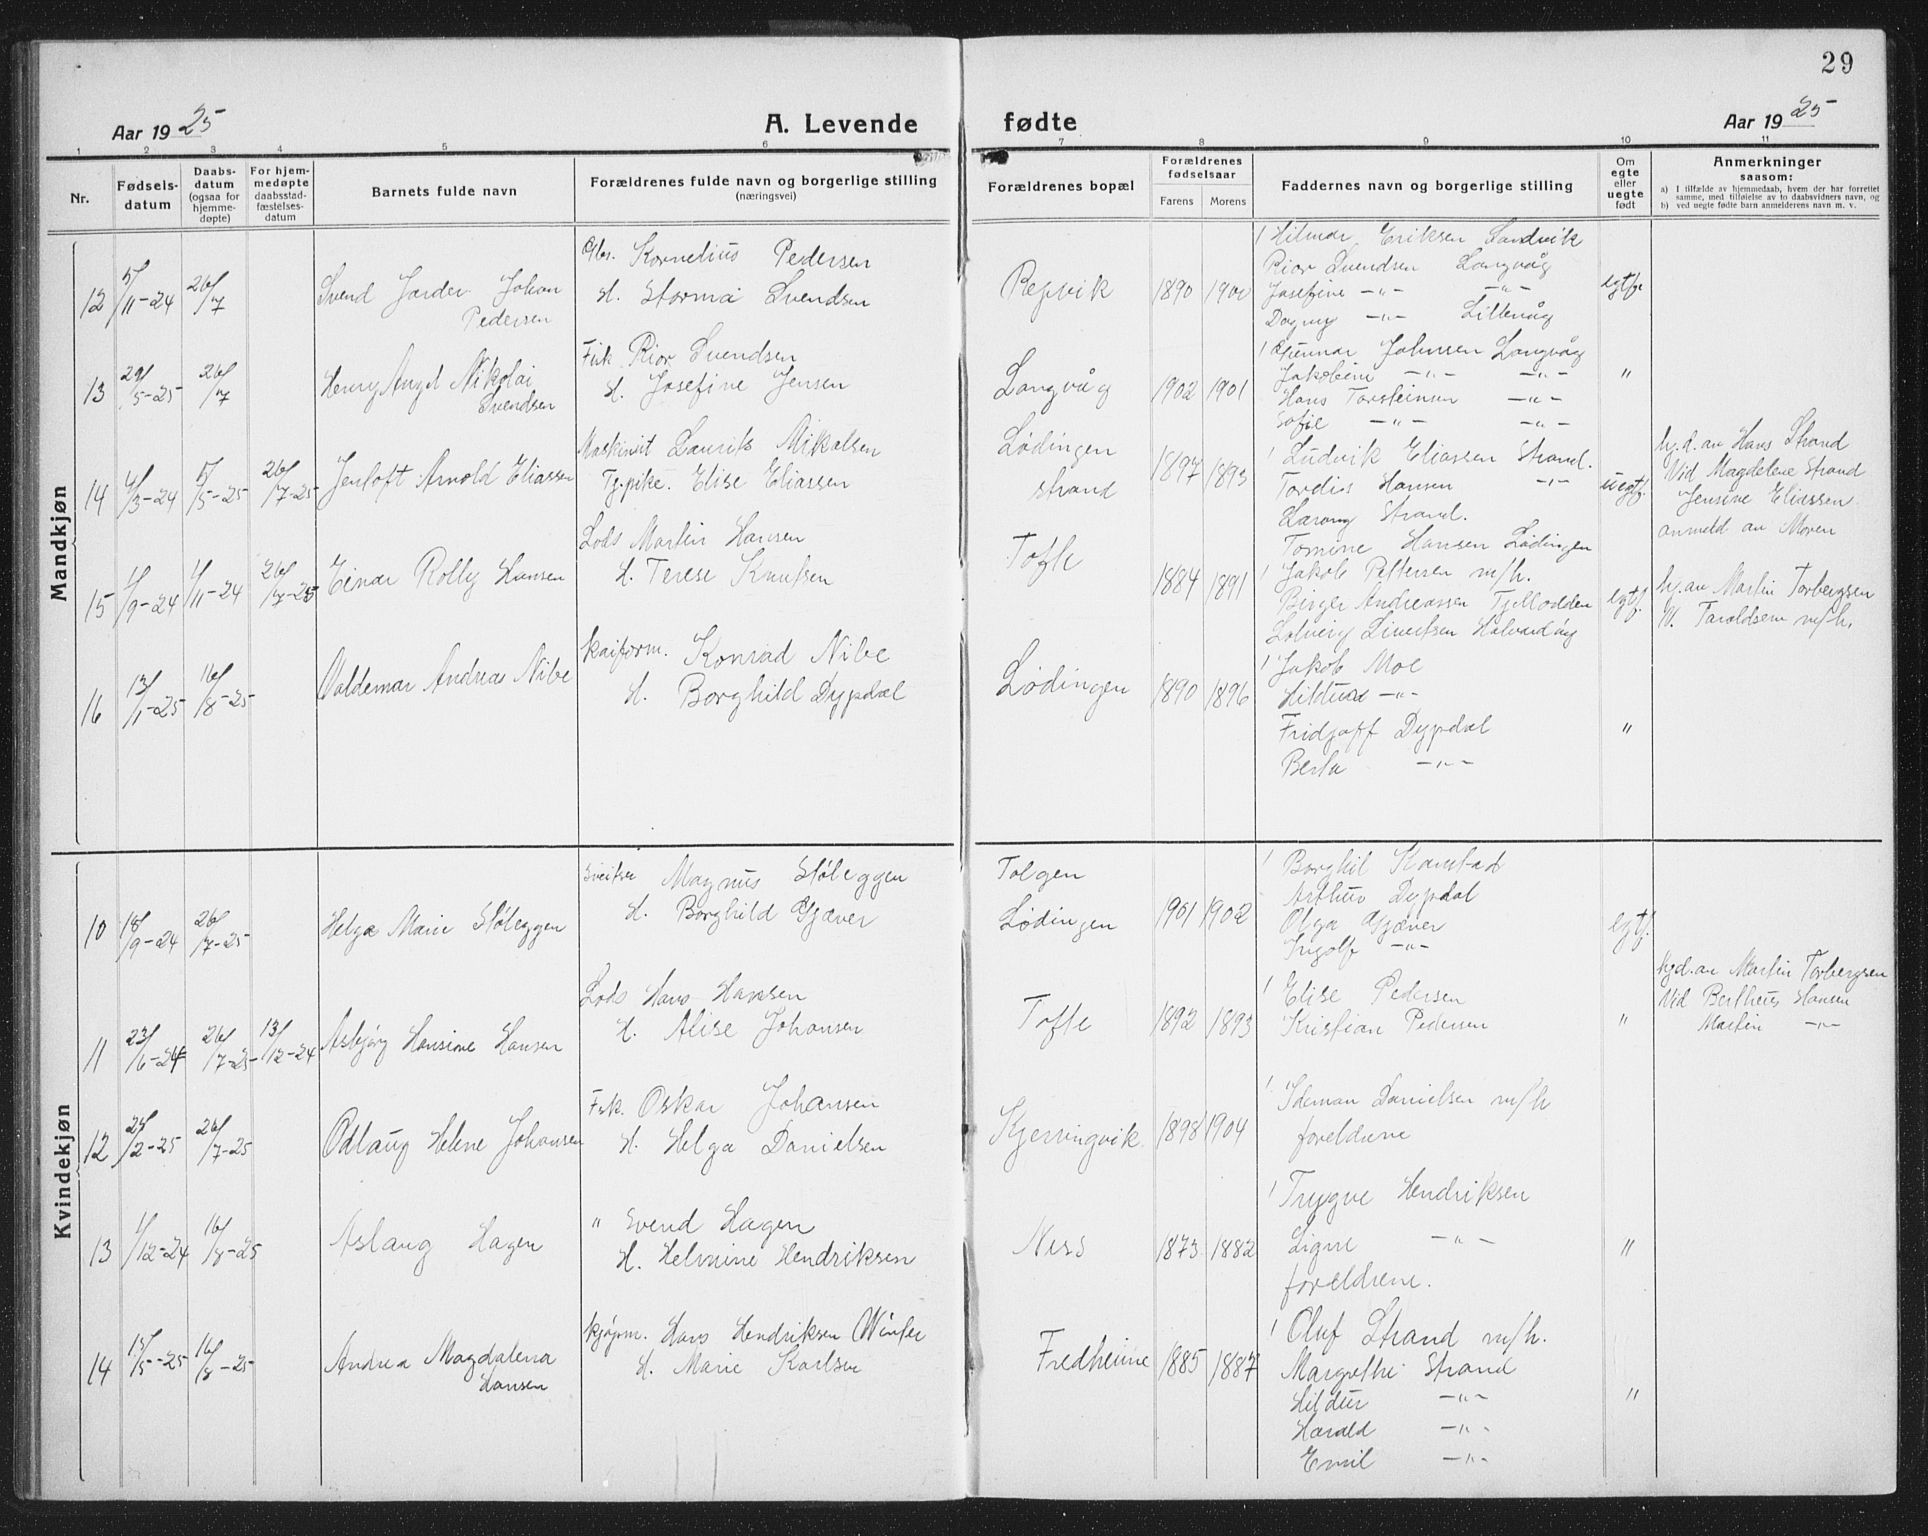 29
Aar 1925 A. Levende fødte Aar 1925
1 2 3 4 5 6 7 8 9 10 11
Nr.
Fødsels-
datum
Daabs-
datum
(ogsaa for
hjemme-
døpte)
For hjem-
medøpte
daabsstad-
fæstelses-
datum
Barnets fulde navn
Forældrenes fulde navn og borgerlige stilling
(næringsvei)
Forældrenes bopæl
Forældrenes
fødselsaar
Farens Morens
Faddernes navn og borgerlige stilling
Om
egte
eller
uegte
født
Anmerkninger
saasom:
a) I tilfælde av hjemmedaab, hvem der har forrettet
samme, med tilføielse av to daabsvidners navn, og
b) ved uegte fødte barn anmelderens navn m. v.
Mandkjøn
12 5/11-24 26/7
Svend Johan
Pedersen
Kornelius Pedersen
H. Storma Svendsen
Repvik 1890 1900
Hilmar Eriksen Sandvik
Rior Svendsen Langvåg
Josefine -"- -"-
Dagny -"- Littevåg
egtf.
13 29/5-25 26/7
Henry Angel Nikolai
Svendsen
Fisk. Rior Svendsen
H. Josefine Jensen
Langvåg 1902 1901
Gunnar Johnsen Langvåg
Jakobine -"- -"-
Hans Torsteinsen -"-
Sofie -"- -"-
"
14 4/3-24 5/5-25 26/7-25
Jentoft Arnold Eliassen
Maskinist Laurits Mikalsen
Tj.pike. Elise Eliassen
Lødingen
strand
1897 1893
Ludvik Eliassen Strand.
Tordis Hansen -"-
Strand.
Tomine Hansen Lødingen
uegtf.
hj.d. av Hans Strand
Vid Magdelene Strand
Jensine Eliassen
anmeld av Moren
15 1/9-24 1/11-24 26/7-25
Einar Rolly Hansen
Lods Martin Hansen
H. Terese Knutsen
Tofte 1884 1891
Jakob Pettersen m/h.
Birger Andreassen Tjelodden
Solveig Sivertsen
egtf.
hj. av Martin Torbergsen
V. Taraldsen m/h.
16 13/1-25 16/8-25
Valdemar Andreas Nibe
kaiform. Konrad Nibe
H. Borghild Dypdal
Lødingen 1890 1896
Jakob Moe
-"-
Fridjoff Dypdal
Berta -"-
"
Kvindekjøn
10 18/9-24 26/7-25
Helga Marie Støleggen
Sveitser Magnus Støleggen
H. Borghild Gjæver
Tolgen
Lødingen
1901 1902
Borghil Kanstad
Arthur Dypdal
Olga Gjæver
Ingolf -"-
egtf.
11 23/6-24 26/7-25 13/12-24
Asbjørg Hansine Hansen
Lods Hans Hansen
H. Alise Johansen
Tofte 1892 1893
Elise Pedersen
Kristian Pedersen
"
hjd. av Martin Torbergsen
Vid Bertheus Hansen
Martin -"-
12 25/2-25 26/7-25
Odlaug Helene Johansen
Fisk. Oskar Johansen
H. Helga Danielsen
Kjerringvik 1898 1904
Ideman Danielsen m/h
foreldrene
13 1/12-24 16/8-25
Aslaug Hagen
" Svend Hagen
H. Helmine Hendriksen
Ness 1873 1882
Trygve Hendriksen
Signe -"-
foreldrene.
"
14 15/5-25 16/8-25
Andrea Magdalena
Hansen
kjøpm. Hans Hendriksen Winter
H. Marie Karlsen
Fredheim 1885 1887
Oluf Strand m/h.
Margrethe Strand
Hildur -"-
Harald -"-
Emil -"-
"